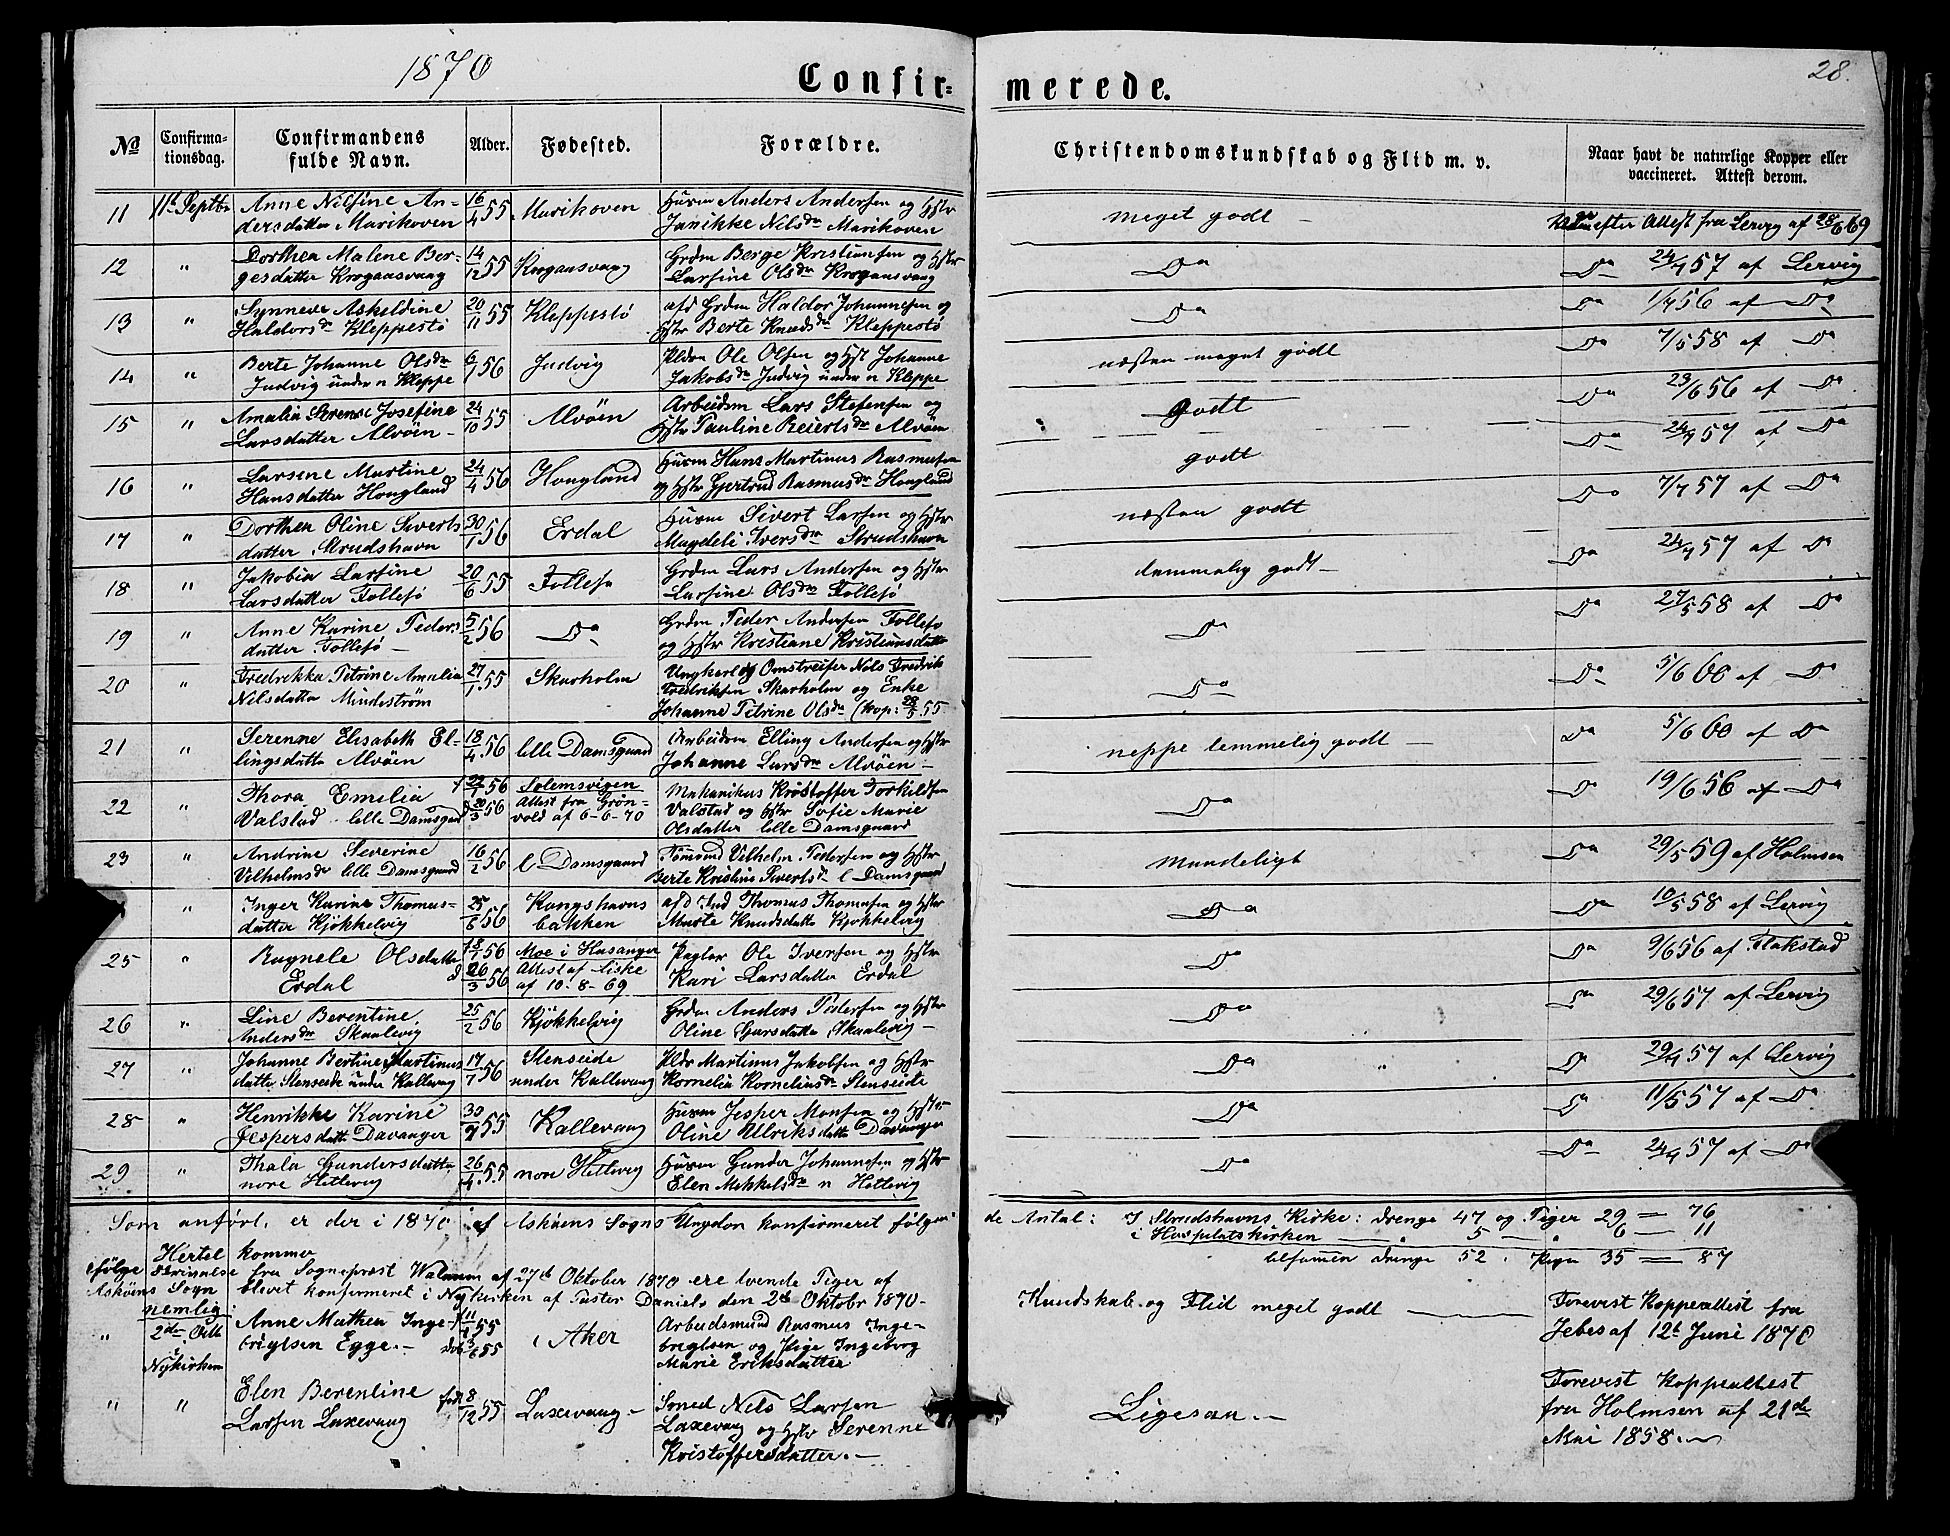 1870
28.
Confir=
merede.
No
Confirma-
tionsdag.
Confirmandens
fulde Navn.
Alder.
Fødested.
Forældre.
Christendomskundskab og Flid m. v.
Naar havt de naturlige Kopper eller
vaccineret. Attest derom.
11 11te Septbr Anne Nilsine An- 16/4 55 Marikoven Husm Anders Andersen og Hstr meget godt –
dersdatter Marikoven Janikke Nelsdr Marikoven efter Attest fra Lervig af 28/6 69
12 " Dorthea Malene Ber- 14/12 55 Krogaasvaag Grdm Berge Kristiansen og Hstr Do Do 24/7 57 af Lervig
gesdatter Krogaasvaag Larsine Olsdr Krogaasvaag
13 " Synneve Askeldine 20/11 55 Kleppestö afd Grdm Haldor Johannesen og Do Do 1/7 56 af Do
Haldorsdr Kleppestö Hstr Berte Knudsdr Kleppestö
14 " Berte Johanne Olsdr 6/1 56 Judvig Pldsm Ole Olsen og Hst Johanne næsten meget godt Do 7/5 58 af Do
Judvig under n Kleppe Jakobsdr Judvig under n Kleppe
15 " Amalia Serene Josefine 24/10 55 Alvöen Arbeidsm Lars Stefensen og Godt Do 23/6 56 af Do
Larsdatter Alvöen – Hstr Pauline Reiertsdr Alvöen
16 " Larsene Martine 24/4 56 Hougland Husm Hans Martinus Rasmusen godt Do 24/7 57 af Do
Hansdatter Hougland og Hstr Gjertrud Rasmusdr Hougland
17 " Dorthea Oline Siverts 30/1 56 Erdal Husm Sivert Larsen og Hstr næsten godt Do 7/7 57 af Do
datter Strudshavn Magdeli Iversdr Strudshavn
18 " Jakobia Larsine 20/6 55 Follesø Grdm Lars Andersen og Hstr temmelig godt – Do 24/7 57 af Do
Larsdatter Follesø Larsine Olsdr Follesø
19 " Anne Karine Peders 5/2 56 Do Grdm Peder Andersen Follesø Do Do 27/5 58 af Do
datter Follesø – og Hstr Kristiane Kristiansdatter
20 " Fredrikka Petrine Amalia 27/1 55 Skarholm Ungkarl og Omstreifer Nils Fredrik Do Do 5/6 60 af Do
Nilsdatter Mindeström Fredriksen Skarholm og Enke
Johanne Petrine Olsdr (kop: 28/5 55
21 " Serenne Elisabeth El- 18/4 56 lille Damsgaard Arbeidsm Elling Andersen og Hstr neppe temmelig godt – Do 5/6 60 af Do
lingsdatter Alvöen Johanne Larsdr Alvöen –
22 " Thora Emilia f 22/1 56 Solemsvigen Mekanikus Kristoffer Torkildsen Do Do 19/6 56 af Do
Valstad lille Damsgard d 20/3 56 Attest fra Grön- Valstad og Hstr Sofie Marie
vold af 6-6-70 Olsdatter lille Damsgaard
23 " Andrine Severine 16/2 56 l Damsgaard Tömmd Vilhelm Pedersen og Hstr maadeligt Do 29/5 59 af Holmsen
Vilhelmsdr lille Damsgaard Berte Kristine Sivertsd l Damsgaard
" Inger Karine Thomas- 25/6 56 Kongshavns afd Ind Thomas Thomasen og Hstr Do Do 10/5 58 af Lervig
datter Kjøkkelvig bakken Marte Knudsdatter Kjøkkelvig
25 " Ragnele Olsdatter f 8/1 56 Moe i Hosanger Pagtar Ole Iversen og Hstr Do Do 9/6 56 af Flakstad
Erdal d 26/3 56 Attest af Aiske Kari Larsdatter Erdal
af 10-8-69
26 " Line Berentine 25/2 56 Kjøkkelvig Grdm Anders Pedersen og Hstr Do Do 29/6 57 af Lervig
Andersdr Skaalevig Oline Garsdatter Skaalevig –
27 " Johanne Bertine Martinus 17/7 56 Stenseide Plds Martinus Jakobsen og Hstr Do " Do 29/9 57 af Lervig
datter Stenseide under Kallevaag under Kallevaag Kornelia Korneliusdr Stenseide
28 " Henrikke Karine 30/9 55 Kallevaag Husm Jesper Monsen og Hstr Do Do 11/5 57 af Do
Jespersdattr Davanger Oline Ulriksdattr Davanger
29 " Thala Gundersdatter 26/4 55 nore Hetlevig Husm Gunder Johannesen og Hstr Do Do 24/9 57 af Do
nore Hetlevig Elen Mikkelsdr n Hetlevig
Som anført, er der i 1870 af Asköens Sogns Ungdom konfirmeret følgen- de Antal: I Strudshavns Kirke: Drenge 47 og Piger 29 = 76
i Hospitalskirken — 5 — " 6 — 11
tilsamen Drenge 52. Piger 35 = 87
Hertel kommer
efølge Skrivelse fra Sogneprest Walnum af 27de Oktober 1870 ere tvende Piger af
Asköens Sogn blevet konfirmeret i Nykirken af Pastor Daniels den 2de Oktobr 1870 –
nemlig:
" 2de Octb Anne Mathea Inge- f 11/4 55 i Aker Arbeidsmand Rasmus Inge- Kundskab og Flid meget godt — Forevist Koppeattest fra
i brigtsen Egge. – døb 3/6 55 brigtsen og Pige Ingeborg Jebes af 12te Juni 1870
Nykirken Marie Eriksdatter
" " Elen Berentine fød 8/12 55 Laxevaag – Smed Nels Larsen Ligesaa. – Forevist Koppeattest
Larsen Laxevaag Laxevaag og Hstr Serenne fra Holmsen af 21de
Kristoffersdatter. – Mai 1858. –